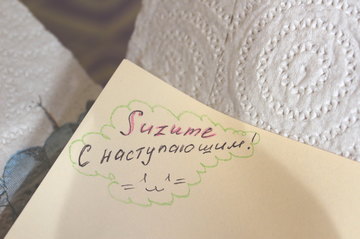 Suzume
С наступающим!
=╹ω╹=